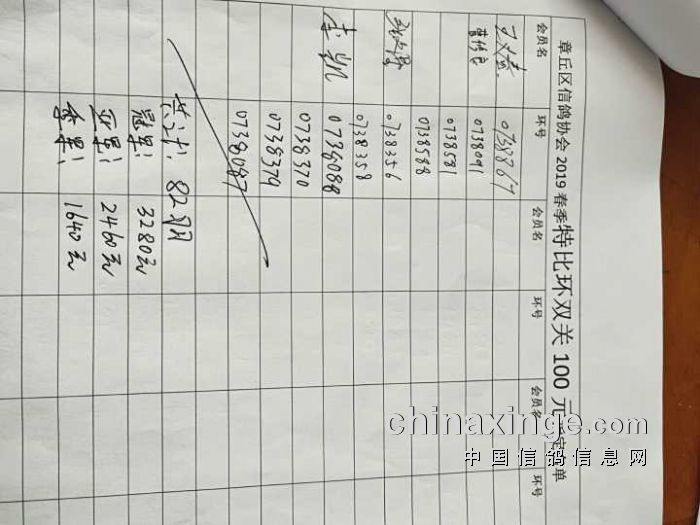 章丘区信鸽协会 2019 春季特比环双关 100 元
单
会员名 环号 会员名 环号 会员名 环号
0738367
0738091
0738581
0738588
0738356
0738358
李凯 0738088
0738370
0738379
0738087
共计: 82羽
冠军: 3280元
亚军: 2460元
季军: 1640元
chinaxinge.com
中国信鸽信息网